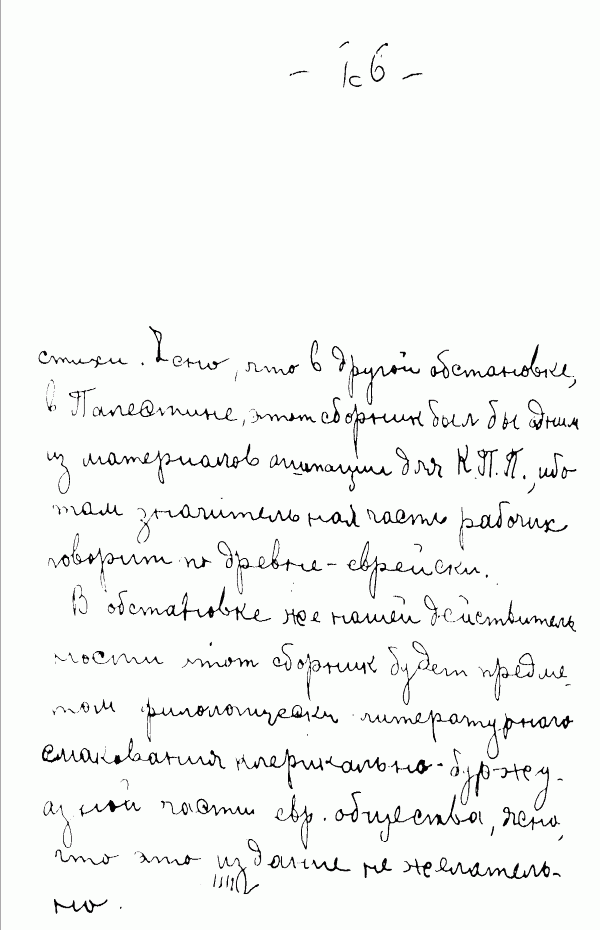 стихи. Ясно, что в другой обстановке,
в Палестине, этот сборник был бы одним
из материалов агитации для К.П.П., ибо
там значительная часть рабочих
говорит по древне-еврейски.
В обстановке же нашей действитель
ности этот сборник будет предме-
том филологически литературного
смакования клерикально-буржу-
азной части евр. общества, ясно,
что это издание не желатель-
но.